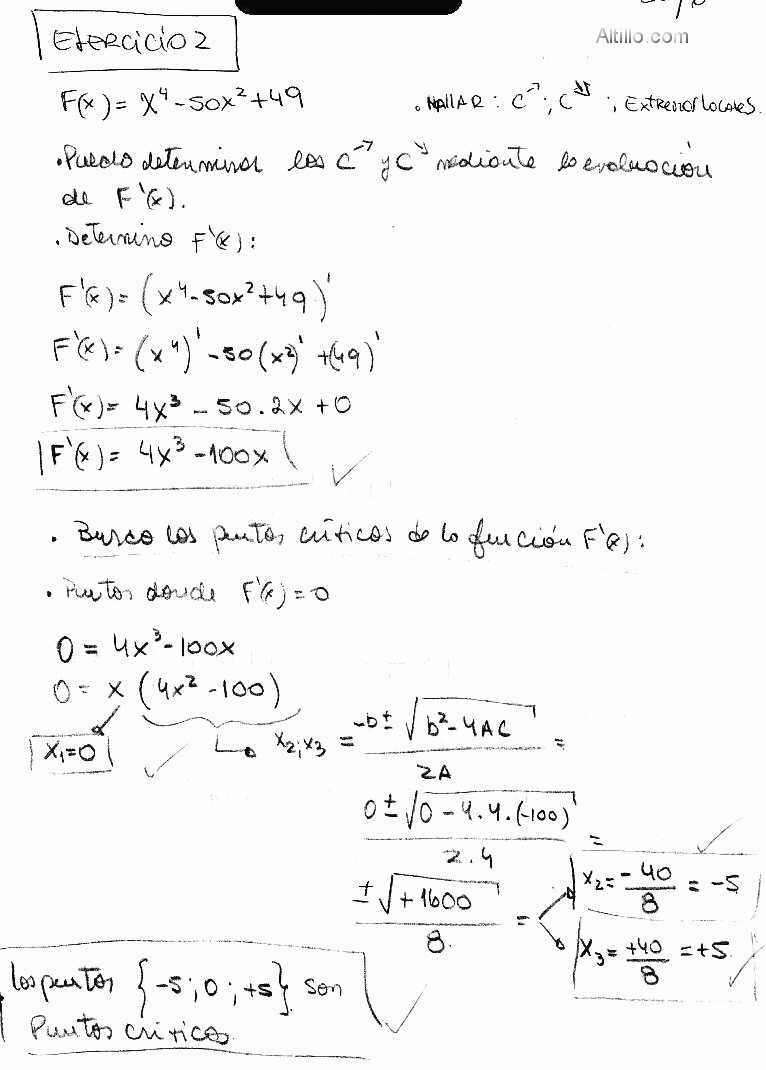 Altillo.com
Ejercicio 2
F(x) = x⁴ - 50x² + 49 . HALLAR : C↗ ; C↘ ; Extremos locales.
. Puedo determinar los C↗ y C↘ mediante la evaluación
de F'(x).
. Determino F'(x) :
F'(x) = (x⁴ - 50x² + 49)'
F'(x) = (x⁴)' - 50(x²)' + (49)'
F'(x) = 4x³ - 50.2x + 0
F'(x) = 4x³ - 100x
. Busco los puntos críticos de la función F'(x) :
. Puntos donde F'(x) = 0
0 = 4x³ - 100x
0 = x (4x² - 100)
x₁ = 0
x₂;x₃ = -b ± √(b² - 4AC) / 2A =
0 ± √(0 - 4.4.(-100)) / 2.4 =
± √(+1600) / 8. =
x₂ = -40/8 = -5
x₃ = +40/8 = +5
Los puntos {-5 ; 0 ; +5} son
Puntos críticos.